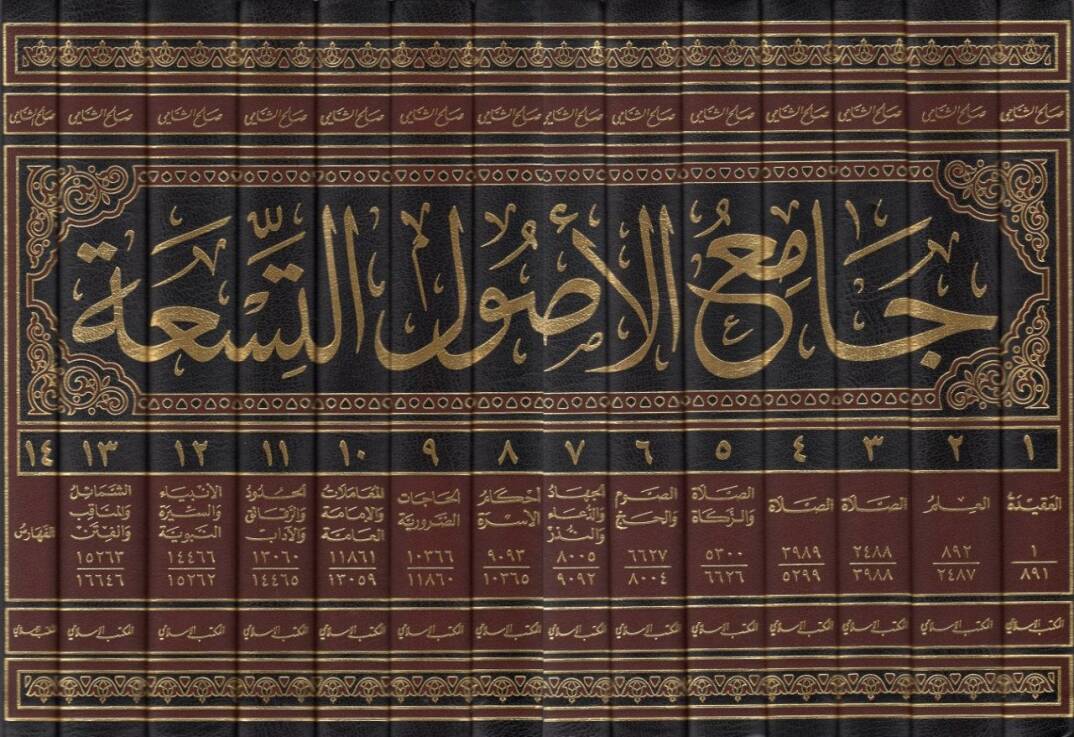 صالح الشامي صالح الشامي صالح الشامي صالح الشامي صالح الشامي صالح الشامي صالح الشامي صالح الشامي صالح الشامي صالح الشامي صالح الشامي صالح الشامي صالح الشامي صالح الشامي
جَامِعُ الأُصُولِ التِّسْعَةِ
١ ٢ ٣ ٤ ٥ ٦ ٧ ٨ ٩ ١٠ ١١ ١٢ ١٣ ١٤
العقيدة
١
٨٩١
العلم
٨٩٢
٢٤٨٧
الصلاة
٢٤٨٨
٣٩٨٨
الصلاة
٣٩٨٩
٥٢٩٩
الصلاة
والزكاة
٥٣٠٠
٦٦٢٦
الصوم
والحج
٦٦٢٧
٨٠٠٤
الجهاد
والدعاء
والنذر
٨٠٠٥
٩٠٩٢
أحكام
الأسرة
٩٠٩٣
١٠٣٦٥
الحاجات
الضرورية
١٠٣٦٦
١١٨٦٠
المعاملات
والإمامة
العامة
١١٨٦١
١٣٠٥٩
الحدود
والرقائق
والآداب
١٣٠٦٠
١٤٤٦٥
الأنبياء
والسيرة
النبوية
١٤٤٦٦
١٥٢٦٢
الشمائل
والمناقب
والفتن
١٥٢٦٣
١٦٦٤٦
الفهارس
المكتب الإسلامي المكتب الإسلامي المكتب الإسلامي المكتب الإسلامي المكتب الإسلامي المكتب الإسلامي المكتب الإسلامي المكتب الإسلامي المكتب الإسلامي المكتب الإسلامي المكتب الإسلامي المكتب الإسلامي المكتب الإسلامي المكتب الإسلامي